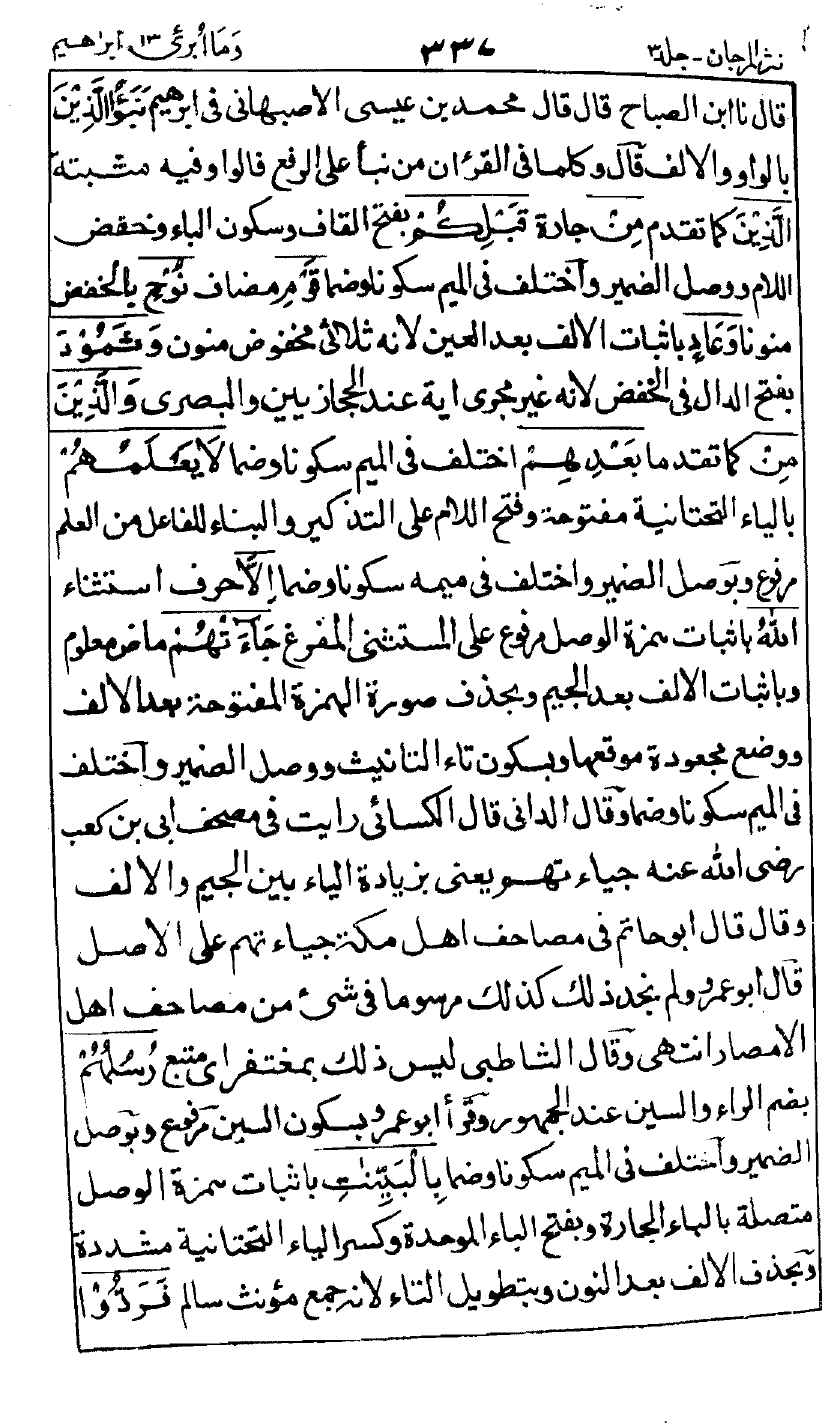 نثر المرجان - جلد ٣ ٣٣٧ وَمَا أُبَرِّئُ ١٣، ابراهيم
قال نا ابن الصباح قال قال محمد بن عيسى الاصبهاني في ابرٰهيم نَبَؤُا الَّذِيْنَ
بالواو والالف قال وكلما في القرءان من نبأ على الرفع فالواو فيه مثبتة
الَّذِيْنَ كما تقدم مِنْ جارة قَبْلِكُمْ بفتح القاف وسكون الباء وخفض
اللام ووصل الضمير واختلف في الميم سكونا وضما قَوْمِ مضاف نُوْحٍ بالخفض
منونا وَعَادٍ باثبات الالف بعد العين لانه ثلاثي مخفوض منون وَثَمُوْدَ
بفتح الدال في الخفض لانه غير مجرى اية عند الحجازيين والبصرى وَالَّذِيْنَ
مِنْ كما تقدما بَعْدِهِمْ اختلف في الميم سكونا وضما لَا يَعْلَمُهُمْ
بالياء التحتانية مفتوحة وفتح اللام على التذكير والبناء للفاعل من العلم
مرفوع وبوصل الضمير واختلف في ميمه سكونا وضما اِلَّا حرف استثناء
اللهُ باثبات همزة الوصل مرفوع على المستثنى المفرغ جَآءَتْهُمْ ماض معلوم
وباثبات الالف بعد الجيم وبحذف صورة الهمزة المفتوحة بعد الالف
ووضع مجعودة موقعها وبسكون تاء التانيث ووصل الضمير واختلف
في الميم سكونا وضما وقال الداني قال الكسائي رايت في مصحف ابي بن كعب
رضى الله عنه جياء تهو يعنى بزيادة الياء بين الجيم والالف
وقال قال ابو حاتم في مصاحف اهل مكة جياء تهم على الاصل
قال ابو عمرو ولم نجد ذلك كذلك مرسوما في شئ من مصاحف اهل
الامصار انتهى وقال الشاطبي ليس ذلك بمغتفر اى متبع رُسُلُهُمْ
بضم الراء والسين عند الجمهور وقرأ ابو عمرو بسكون السين مرفوع وبوصل
الضمير واختلف في الميم سكونا وضما بِالْبَيِّنٰتِ باثبات همزة الوصل
متصلة بالباء الجارة وبفتح الباء الموحدة وكسر الياء التحتانية مشددة
وبحذف الالف بعد النون وبتطويل التاء لانه جمع مؤنث سالم فَرَدُّوْا